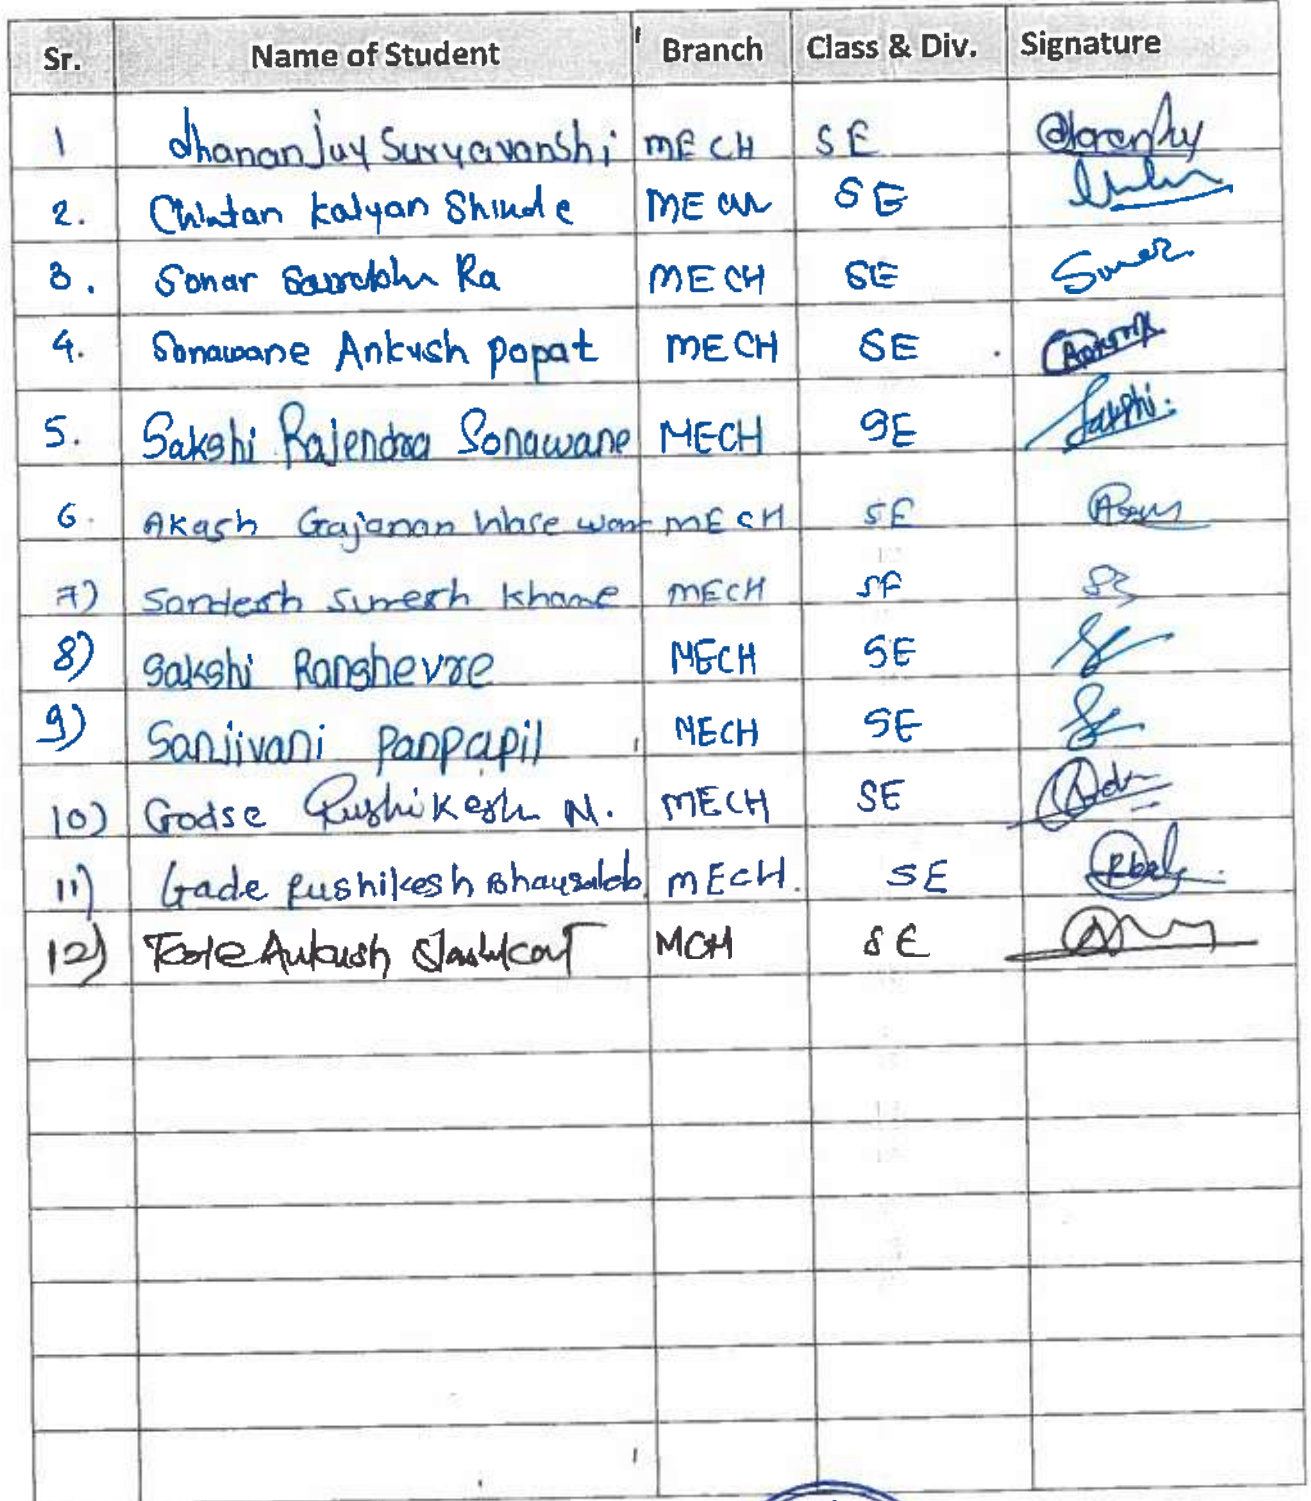 Sr. Name of Student Branch Class & Div. Signature
1 dhananJay Suryavanshi MECH SE
2. Chintan kalyan Shinde MECH SE
3. Sonar Saurabh Ra MECH SE Sonar
4. Sonawane Ankush popat MECH SE
5. Sakshi Rajendra Sonawane MECH SE Sakshi.
6. Akash Gajanan MECH SE
7) Sandesh Suresh Khane MECH SE
8) Sakshi Ranshevre MECH SE
9) Sanjivani panpapil MECH SE
10) Godse Rushikesh N. MECH SE
11) Gade Rushikesh Bhausaheb MECH. SE
12) MCH SE